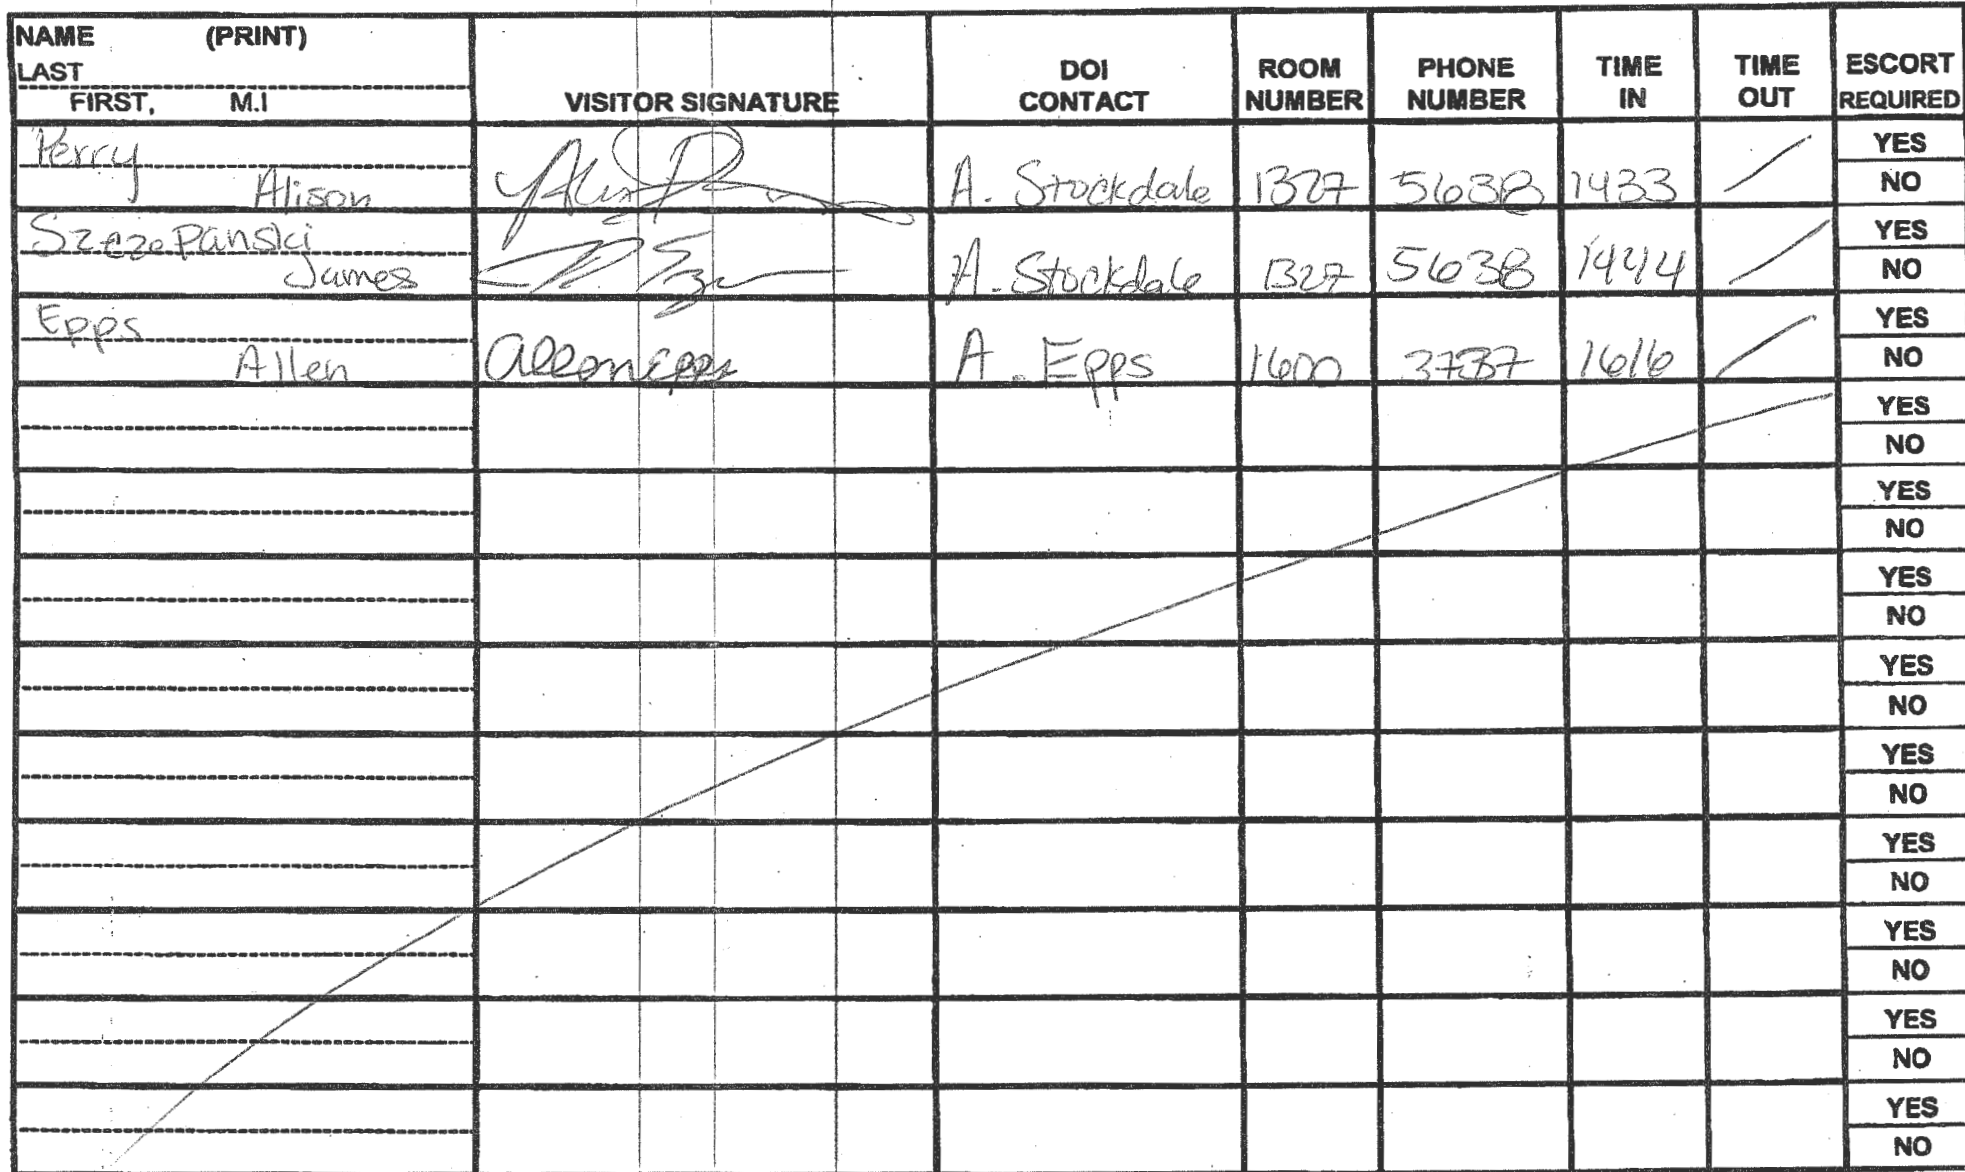 NAME (PRINT)
LAST
FIRST, M.I
VISITOR SIGNATURE
DOI CONTACT
ROOM NUMBER
PHONE NUMBER
TIME IN
TIME OUT
ESCORT REQUIRED
Perry
Alison
A. Stockdale 1327 5638 1433
YES
NO
Szczepanski
James
A. Stockdale 1327 5638 1444
YES
NO
Epps
Allen
Allen Epps
A. Epps 1600 3737 1616
YES
NO
YES
NO
YES
NO
YES
NO
YES
NO
YES
NO
YES
NO
YES
NO
YES
NO
YES
NO